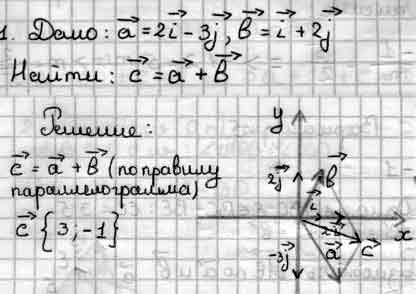 1. Дано: a⃗ = 2i⃗ - 3j⃗, b⃗ = i⃗ + 2j⃗
Найти: c⃗ = a⃗ + b⃗
Решение:
c⃗ = a⃗ + b⃗ (по правилу
параллелограмма)
c⃗ {3; -1}
y
2j⃗
b⃗
i⃗
2i⃗
x
-3j⃗
a⃗
c⃗